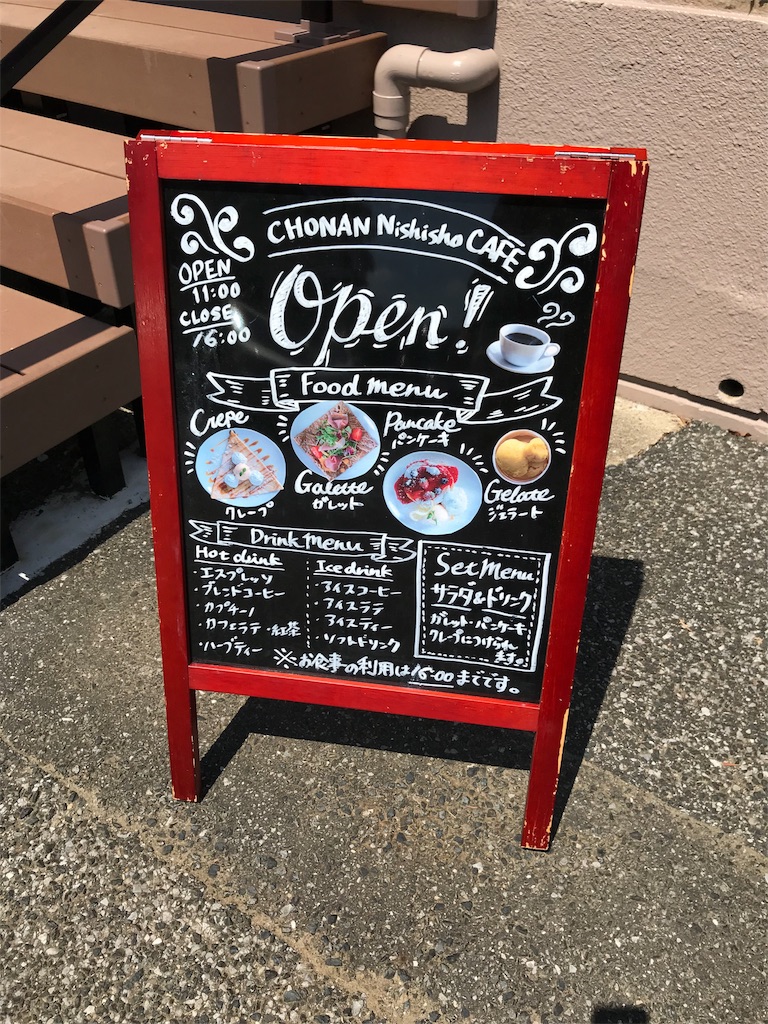 CHONAN Nishisho CAFE
OPEN
11:00
CLOSE
16:00
Open!
Food menu
Crepe
クレープ
Galette
ガレット
Pancake
パンケーキ
Gelate
ジェラート
Drink menu
Hot drink
・エスプレッソ
・ブレンドコーヒー
・カプチーノ
・カフェラテ ・紅茶
・ハーブティー
Ice drink
・アイスコーヒー
・アイスラテ
・アイスティー
・ソフトドリンク
Set Menu
サラダ&ドリンク
ガレット・パンケーキ
クレープにつけられ
ます。
※お食事の利用は16:00までです。